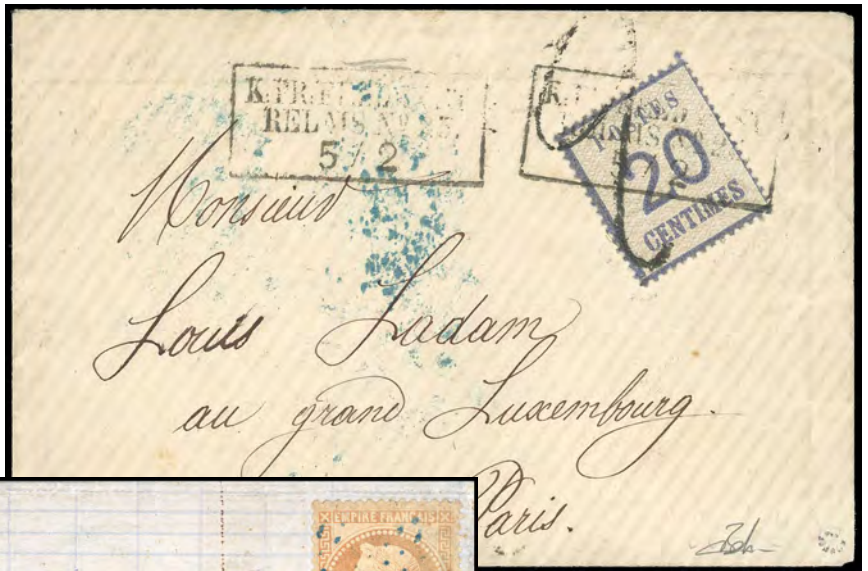 RELAIS No
5 / 2
POSTES
20
CENTIMES
Monsieur
Louis Ladam
au grand Luxembourg.
Paris.
EMPIRE FRANÇAIS